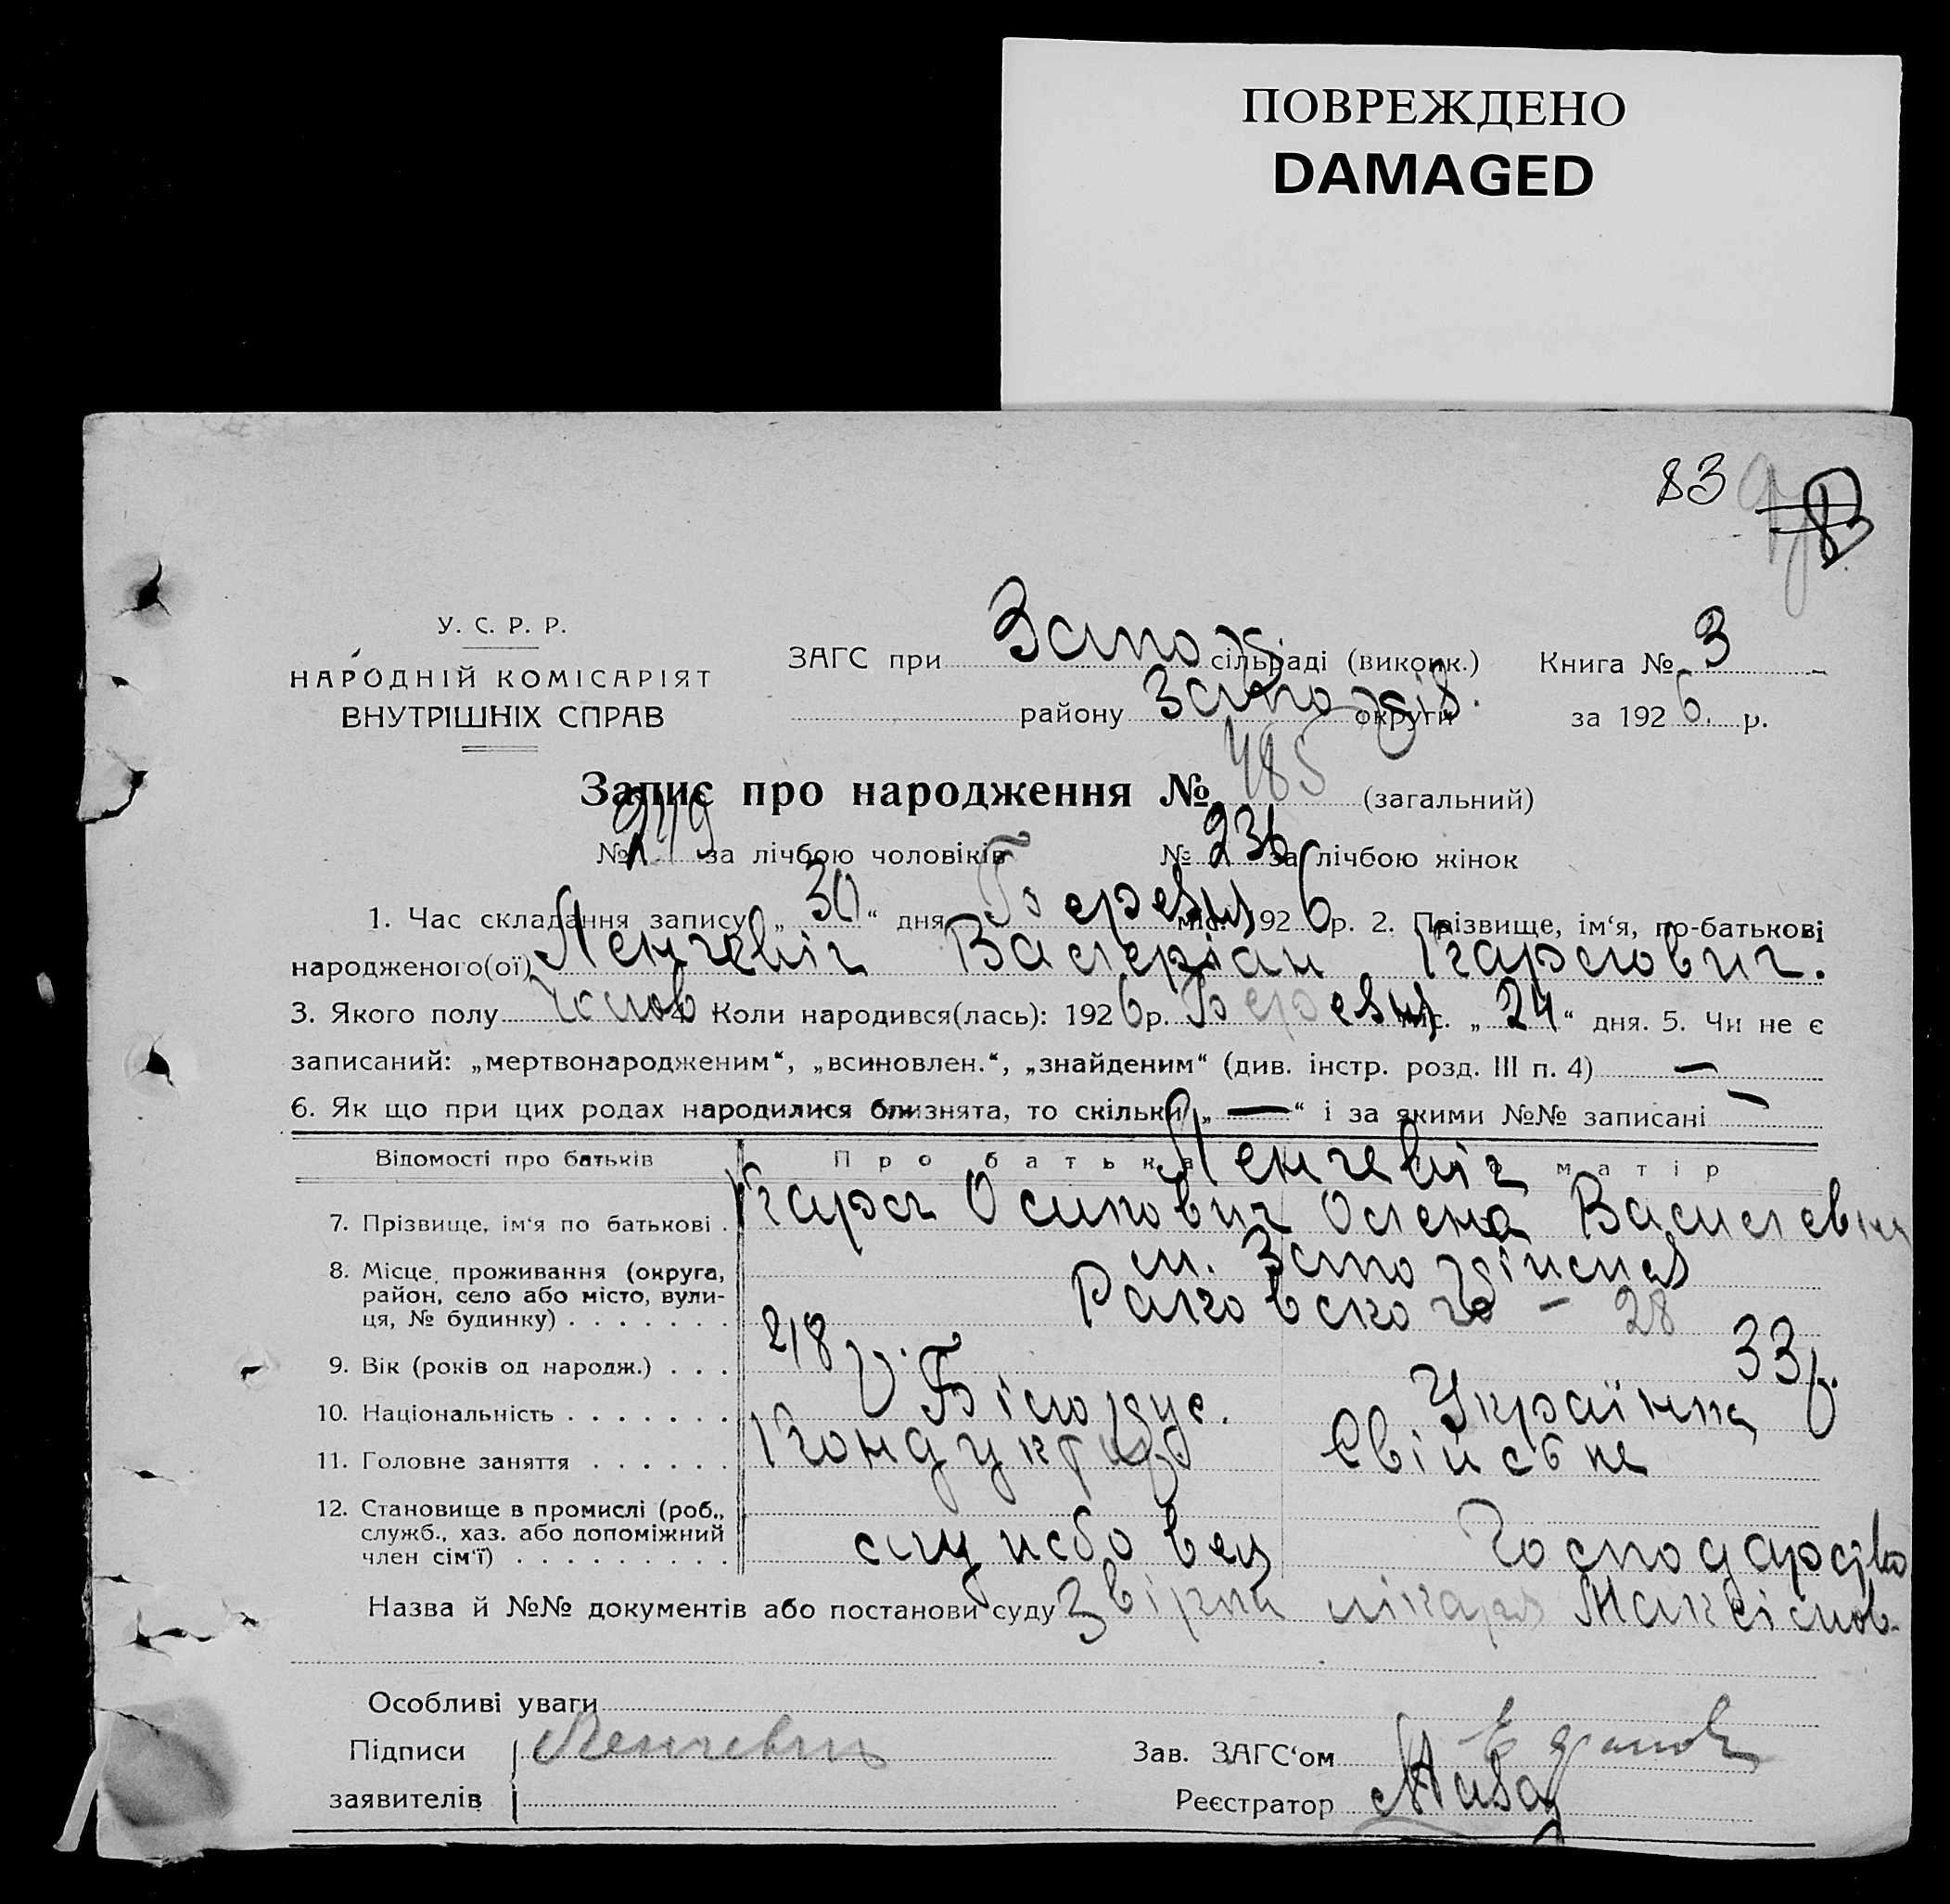 ПОВРЕЖДЕНО
DAMAGED
83
У. С. Р. Р.
НАРОДНІЙ КОМІСАРІЯТ
ВНУТРІШНІХ СПРАВ
ЗАГС при Запо сільраді (виконк.) Книга № 3
району округи за 1926 р.
Запис про народження № 485 (загальний)
№ 249 за лічбою чоловіків № 236 за лічбою жінок
1. Час складання запису „ 30 “ дня Березня міс. 1926 р. 2. Прізвище, ім‘я, по-батькові
народженого(ої) Ленчевіч Валеріан Карлович.
3. Якого полу Чолов 4. Коли народився(лась): 1926 р. Березня міс. „ 24 “ дня. 5. Чи не є
записаний: „мертвонародженим“, „всиновлен.“, „знайденим“ (див. інстр. розд. III п. 4) —
6. Як що при цих родах народилися близнята, то скільки „ — “ і за якими №№ записані —
Відомості про батьків Про батька матір
Ленчевіч
7. Прізвище, ім‘я по батькові . Карл Осипович Олена Василевна
8. Місце проживання (округа, м. Запоріжжя
район, село або місто, вули-
ця, № будинку) . . . . . . . Раковского - 28
9. Вік (років од народж.) . . . 28 р. 33 р.
10. Національність . . . . . . . Білорус. Українка
11. Головне заняття . . . . . . Кондуктор Свійське
12. Становище в промислі (роб.,
служб., хаз. або допоміжний
член сім‘ї) . . . . . . . . . службовец господарство
Назва й №№ документів або постанови суду Звірка лікаря Максімов.
Особливі уваги
Підписи Ленчевич Зав. ЗАГС‘ом
заявителів Реєстратор